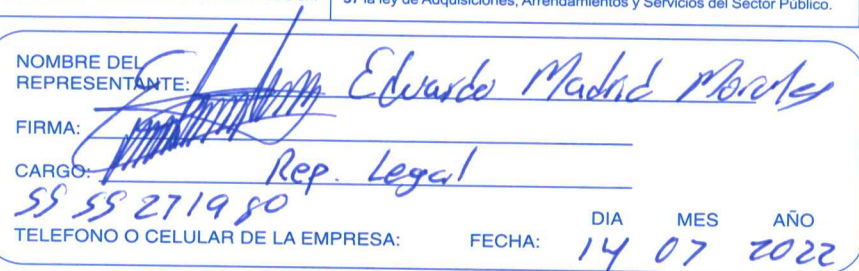 la ley de Adquisiciones, Arrendamientos y Servicios del Sector Público.
NOMBRE DEL
REPRESENTANTE: Eduardo Madrid Morales
FIRMA:
CARGO: Rep. Legal
55 55 271980
TELEFONO O CELULAR DE LA EMPRESA:
DIA MES AÑO
FECHA: 14 07 2022